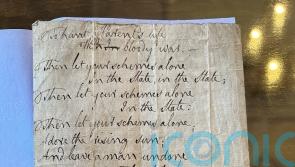 Parent's wife
their bloody war.
Then let your schemes alone
In the State, in the State;
Then let your schemes alone
In the State:
Then let your schemes alone,
Adore the rising sun;
And leave a man undone
ronic